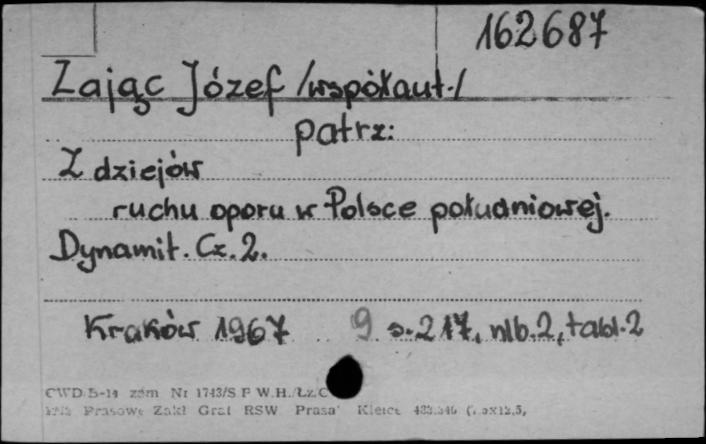 162687
Zając Józef /współaut./
patrz:
Z dziejów
ruchu oporu w Polsce południowej.
Dynamit. Cz. 2.
Kraków 1967 9 s. 217, nlb. 2, tabl. 2
CWD Nr 1743/S P W.H.
Prasowe Zakł Graf RSW Prasa Kielce